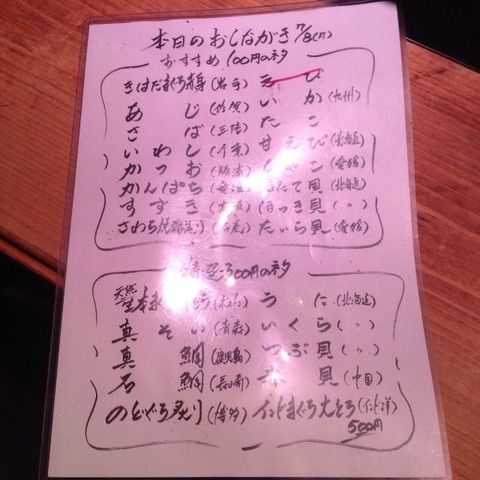 本日のおしながき 7/8(月)
おすすめ 100円のネタ
きはだまぐろ赤身(岩手) えび
あじ いか(九州)
さば(三陸) たこ
いわし(千葉) 甘えび(北海道)
かつお(勝浦) しゃこ(愛媛)
かんぱち ほたて貝(北海道)
すずき(大阪) ほっき貝(〃)
さわら たいら貝(愛媛)
特選 300円のネタ
天然 うに(北海道)
真そい(青森) いくら(〃)
真鯛(鹿児島) つぶ貝(〃)
石鯛(長崎) 赤貝(中国)
のどぐろ炙り(博多) インドまぐろ大とろ(インド洋)
500円